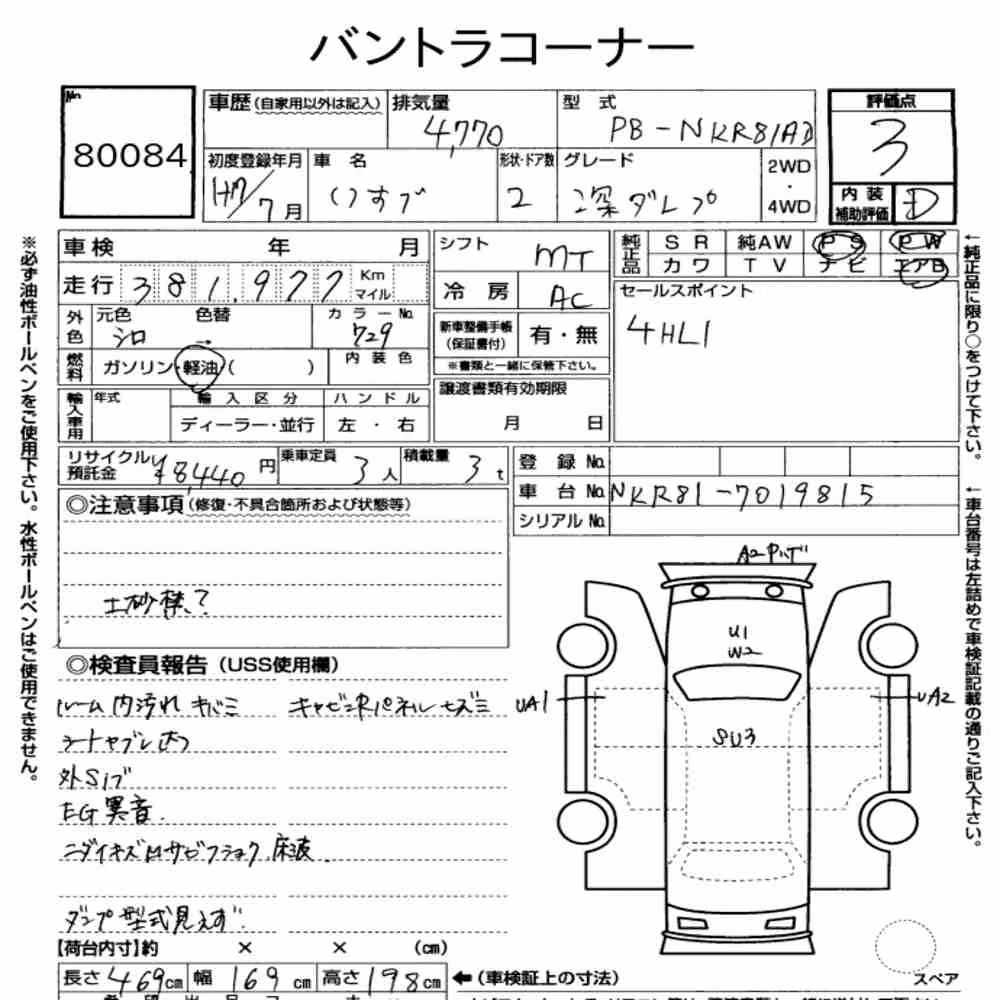 バントラコーナー
No. 80084
車歴(自家用以外は記入)
排気量 4,770
型式 PB-NKR81AD
初度登録年月 H17/7月
車名 いすゞ
形状・ドア数 2
グレード 深ダンプ
2WD・4WD
評価点 3
内装補助評価 D
※必ず油性ボールペンをご使用下さい。水性ボールペンはご使用できません。
車検 年 月
走行 381,977 Km マイル
外色 元色 シロ 色替 →
カラーNo. 729
燃料 ガソリン・軽油/( )
内装色
輸入車用 年式 輸入区分 ディーラー・並行
ハンドル 左・右
シフト MT
冷房 AC
新車整備手帳(保証書付) 有・無
※書類と一緒に保管下さい。
譲渡書類有効期限 月 日
純正品 SR 純AW PS PW
カワ TV ナビ エアB
セールスポイント
4HL1
←純正品に限り○をつけて下さい。
リサイクル預託金 ¥8,440円
乗車定員 3人
積載量 3t
登録No.
車台No. NKR81-7019815
シリアルNo.
←車台番号は左詰めで車検証記載の通りご記入下さい。
◎注意事項(修復・不具合箇所および状態等)
土砂禁?
◎検査員報告(USS使用欄)
ルーム内汚れ キバミ
キャビン Rパネル セズミ
シートヤブレ 大
外Sリブ
EG異音.
ニダイキズ凹サビフショク 床波.
ダンプ型式見えず.
A2
U1
W2
UA1
UA2
SU3
スペア
【荷台内寸】約 × × (cm)
長さ469cm 幅169cm 高さ198cm
←(車検証上の寸法)